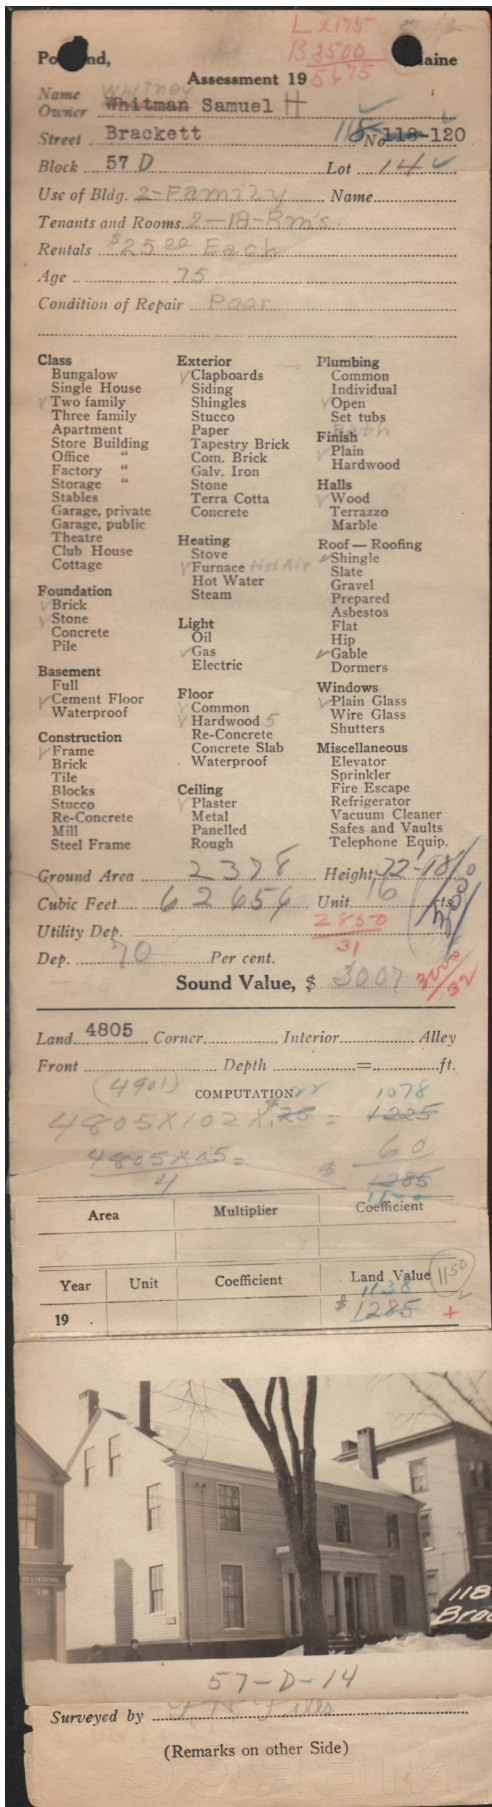 L 2175
B 3500
5675
Po nd, aine
Assessment 19
Whitney
Name Owner Whitman Samuel H
Street Brackett 118 No 118-120
Block 57 D Lot 14
Use of Bldg. 2-Family Name
Tenants and Rooms 2-18-Rm's.
Rentals $25.00 Each
Age 75
Condition of Repair Poor
Class
Bungalow
Single House
Two family
Three family
Apartment
Store Building
Office "
Factory "
Storage "
Stables
Garage, private
Garage, public
Theatre
Club House
Cottage
Foundation
Brick
Stone
Concrete
Pile
Basement
Full
Cement Floor
Waterproof
Construction
Frame
Brick
Tile
Blocks
Stucco
Re-Concrete
Mill
Steel Frame
Exterior
Clapboards
Siding
Shingles
Stucco
Paper
Tapestry Brick
Com. Brick
Galv. Iron
Stone
Terra Cotta
Concrete
Heating
Stove
Furnace Hot Air
Hot Water
Steam
Light
Oil
Gas
Electric
Floor
Common
Hardwood 5
Re-Concrete
Concrete Slab
Waterproof
Ceiling
Plaster
Metal
Panelled
Rough
Plumbing
Common
Individual
Open
Set tubs
Bath
Finish
Plain
Hardwood
Halls
Wood
Terrazzo
Marble
Roof — Roofing
Shingle
Slate
Gravel
Prepared
Asbestos
Flat
Hip
Gable
Dormers
Windows
Plain Glass
Wire Glass
Shutters
Miscellaneous
Elevator
Sprinkler
Fire Escape
Refrigerator
Vacuum Cleaner
Safes and Vaults
Telephone Equip.
Ground Area 2378 Height 22'-18'
Cubic Feet 62656 Unit 16 cts.
3000
Utility Dep. 2850
31
Dep. 70 Per cent.
Sound Value, $ 3007 3000
32
Land 4805 Corner Interior Alley
Front Depth = ft.
(4901) COMPUTATION 22 1078
4805 X 102 X $.25 = 1225
4805 X 05 = 60
4 $ 1285
Area Multiplier Coefficient
Year Unit Coefficient Land Value 1150
1138
19 $ 1285 +
PLUMBING
118
Bra
57-D-14
Surveyed by
(Remarks on other Side)